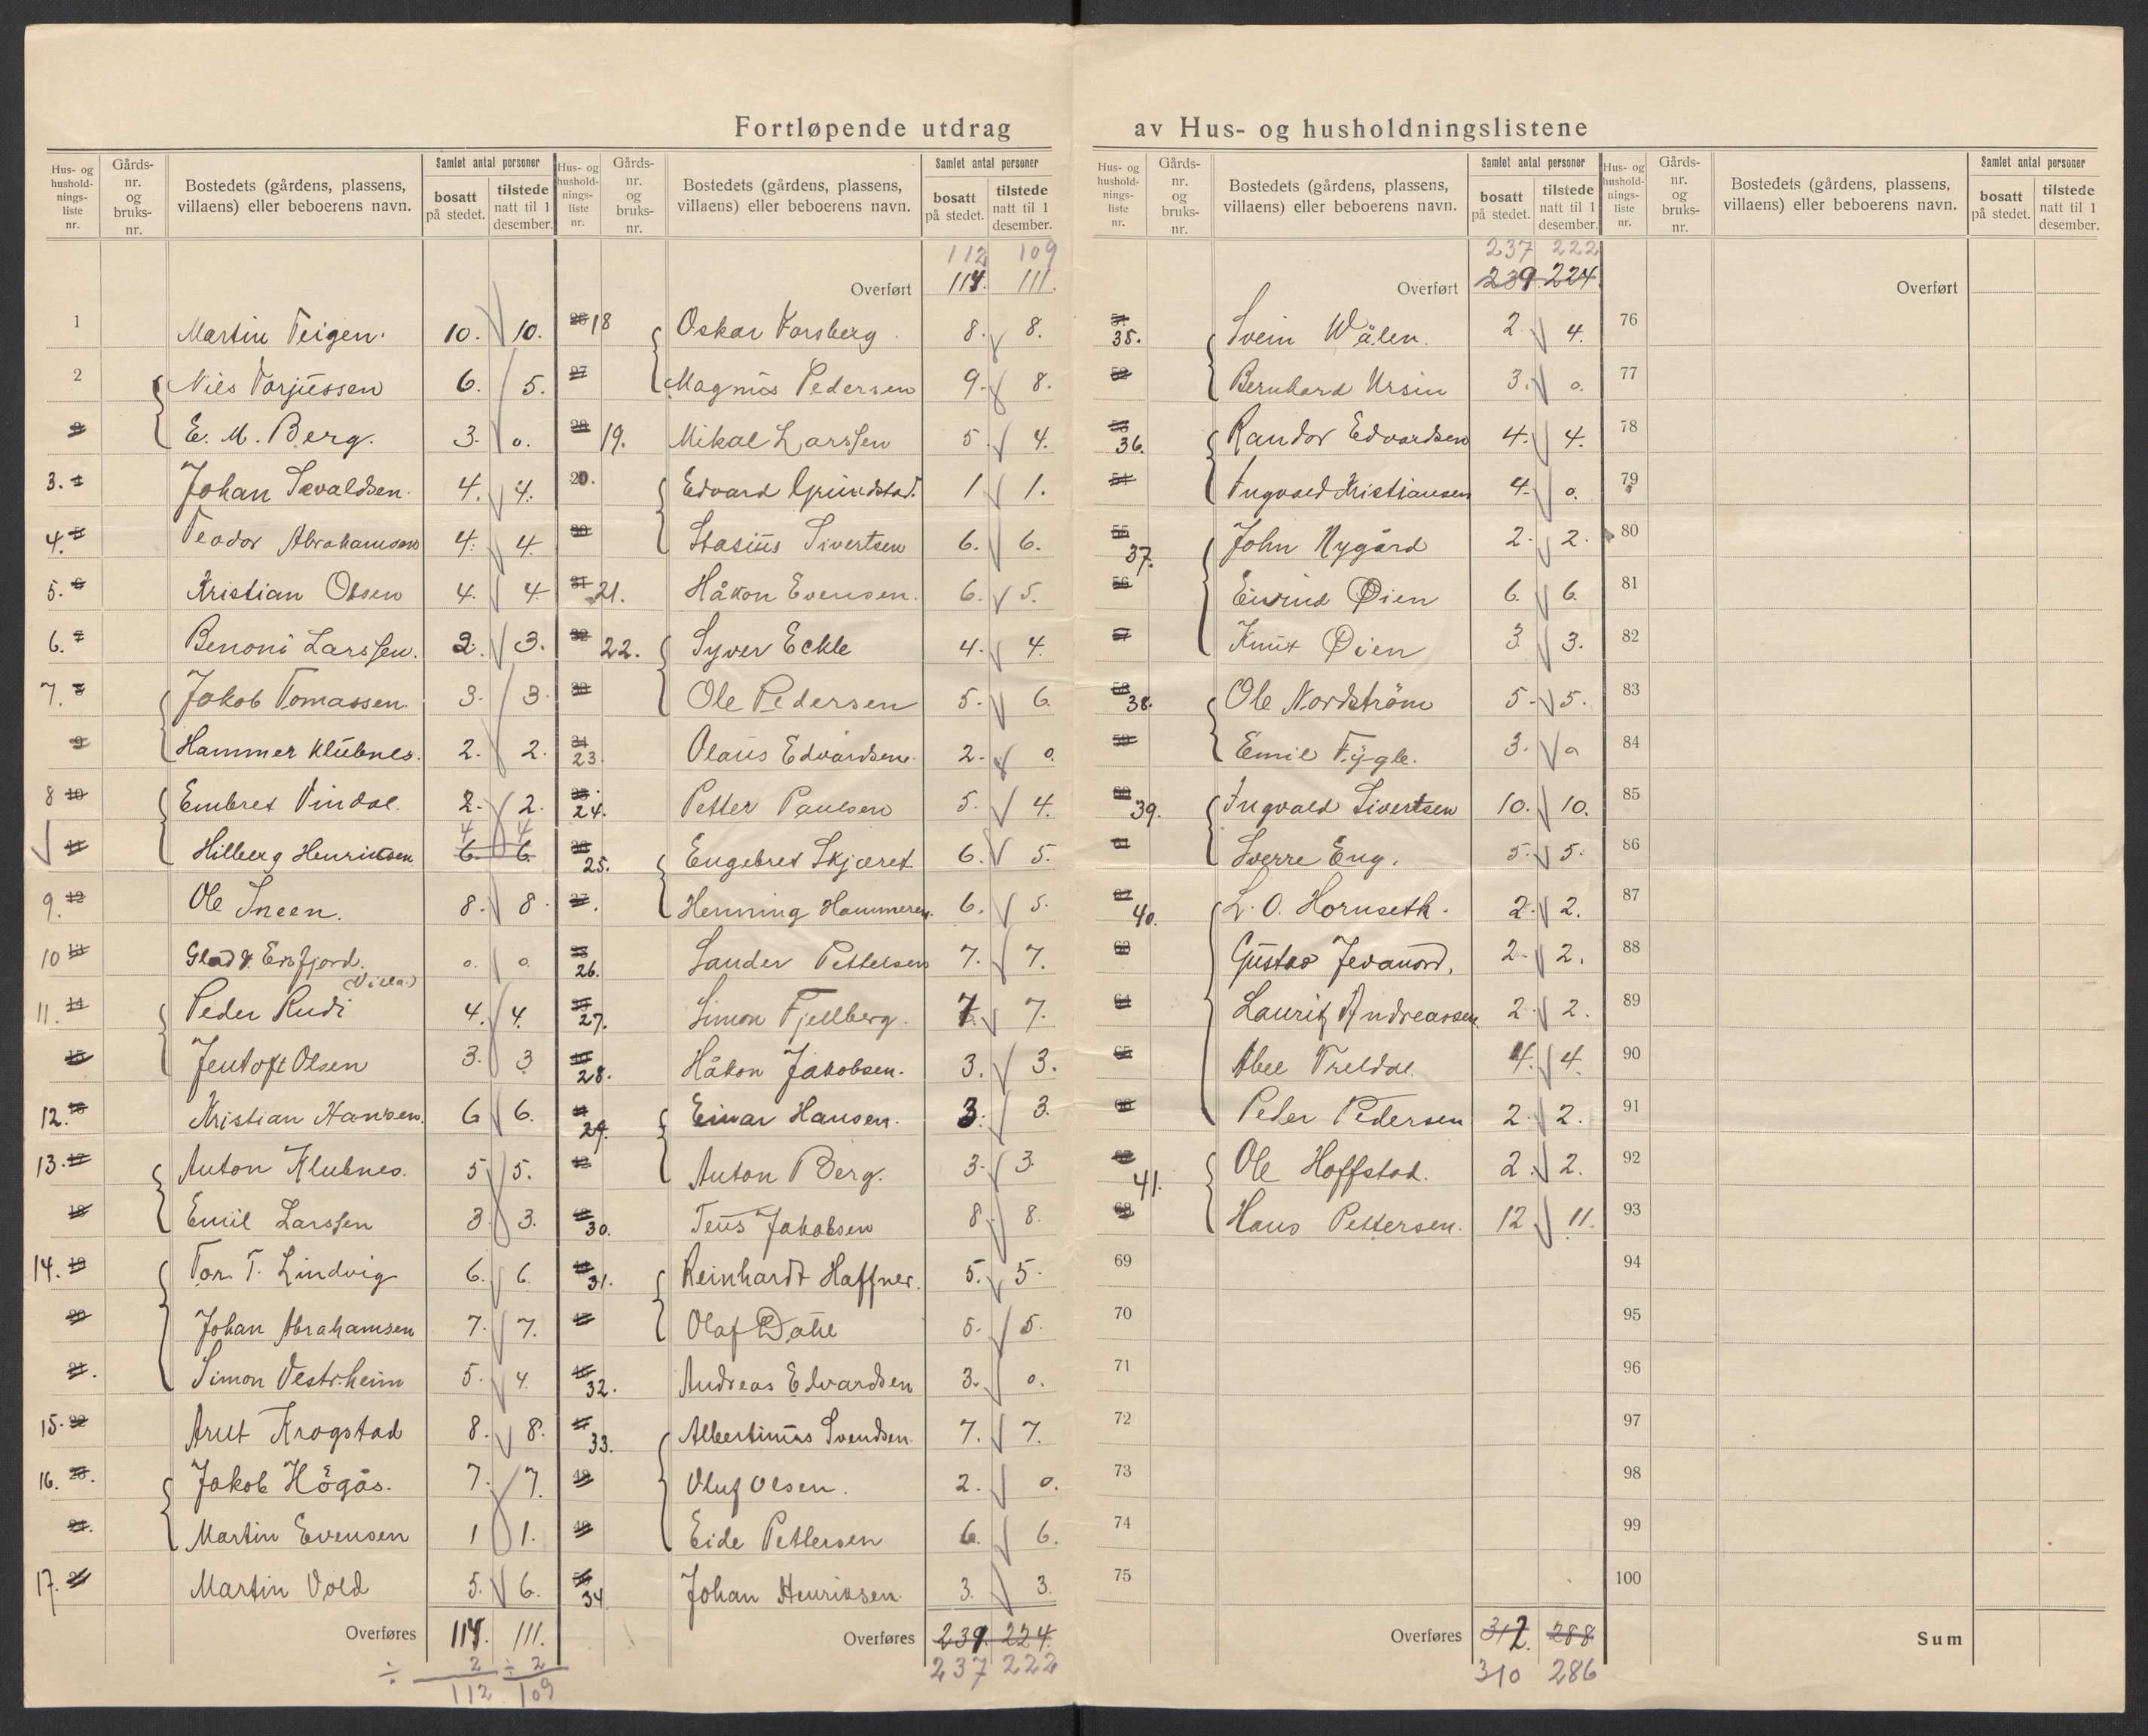 Fortløpende utdrag av Hus- og husholdningslistene
Hus- og husholdningsliste nr. Gårdsnr. og bruksnr. Bostedets (gårdens, plassens, villaens) eller beboerens navn. Samlet antal personer bosatt på stedet. tilstede natt til 1 desember.
1 Martin Teigen. 10. 10.
2 Nils Torjussen 6. 5.
3 E. M. Berg. 3. 0.
3. 4 Johan Sevaldsen. 4. 4.
4. 5 Teodor Abrahamsen 4. 4.
5. 6 Kristian Olsen 4. 4
6. 7 Benoni Larssen. 2. 3.
7. 8 Jakob Tomassen. 3. 3.
9 Hammer Klubnes. 2. 2.
8 10 Embret Vindal. 2. 2.
4 4
11 Hilberg Henriksen. 6. 6.
9. 12 Ole Sneen. 8. 8.
10 13 Glad & Erfjord. (Villa) 0. 0.
11. 14 Peder Rudi 4. 4.
15 Jentoft Olsen 3. 3
12. 16 Kristian Hansen. 6 6.
13. 17 Anton Klubnes. 5 5.
18 Emil Larssen 3. 3.
14. 19 Tor. T. Lindvig 6. 6.
20 Johan Abrahamsen 7. 7.
21. Simon Vestrheim 5. 4.
15. 22 Arut Krogstad 8. 8.
16. 23. Jakob Högås. 7. 7.
24. Martin Evensen 1 1.
17. 25 Martin Vold 5. 6.
Overføres 114. 111.
÷ 2 ÷ 2
112 109
Hus- og husholdningsliste nr. Gårdsnr. og bruksnr. Bostedets (gårdens, plassens, villaens) eller beboerens navn. Samlet antal personer bosatt på stedet. tilstede natt til 1 desember.
112 109
Overført 114. 111.
26 18 Oskar Forsberg. 8. 8.
27 Magnus Pedersen 9. 8.
28 19. Mikal Larssen 5. 4.
20. Edvard Grundstad. 1 1.
30 Stasius Sivertsen 6. 6.
31 21. Håkon Evensen. 6. 5.
32 22. Syver Eckle 4. 4.
33 Ole Pedersen 5. 6.
34 23. Olaus Edvardsen. 2. 0.
35 24. Petter Paulsen 5. 4.
36 25. Engebret Skjæret 6. 5.
37. Henning Hammeren. 6. 5.
38 26. Sander Pettersen 7. 7.
39 27. Simon Fjellberg. 7. 7.
40 28. Håkon Jakobsen. 3. 3.
41 29. Einar Hansen. 3. 3.
42 Anton Berg. 3. 3.
43 30. Teus Jakobsen 8. 8.
44 31. Reinhardt Haffner. 5. 5.
45 Olaf Dahl 5. 5.
46 32. Andreas Edvardsen 3. 0.
47 33. Albertinus Svendsen. 7. 7.
48 Oluf Olsen. 2. 0.
49 Eide Pettersen 6. 6.
50 34. Johan Henriksen. 3. 3.
Overføres 239. 224.
237 222
Hus- og husholdningsliste nr. Gårdsnr. og bruksnr. Bostedets (gårdens, plassens, villaens) eller beboerens navn. Samlet antal personer bosatt på stedet. tilstede natt til 1 desember.
237 222
Overført 239 224.
51 35. Svein Wålen. 2. 4.
52 Bernhard Ursin 3. 0.
53 36. Randor Edvardsen 4. 4.
54 Ingvald Kristiansen 4. 0.
55 37. John Nygård 2. 2.
56 Eivind Øien 6. 6.
57 Knut Øien 3 3.
58 38. Ole Nordström 5. 5.
59 Emil Fygle. 3. 0
60 39. Ingvald Sivertsen 10. 10.
61 Sverre Eng. 5. 5.
62 40. L. O. Hornseth. 2. 2.
63 Gustav Jevanord. 2. 2.
64 Lauritz Andreassen 2. 2.
65 Abel Treldal. 4. 4.
66 Peder Pedersen. 2. 2.
67 41. Ole Hoffstad. 2. 2.
68 Hans Pettersen. 12 11.
69
70
71
72
73
74
75
Overføres 312. 288
310 286
Hus- og husholdningsliste nr. Gårdsnr. og bruksnr. Bostedets (gårdens, plassens, villaens) eller beboerens navn. Samlet antal personer bosatt på stedet. tilstede natt til 1 desember.
Overført
76
77
78
79
80
81
82
83
84
85
86
87
88
89
90
91
92
93
94
95
96
97
98
99
100
Sum